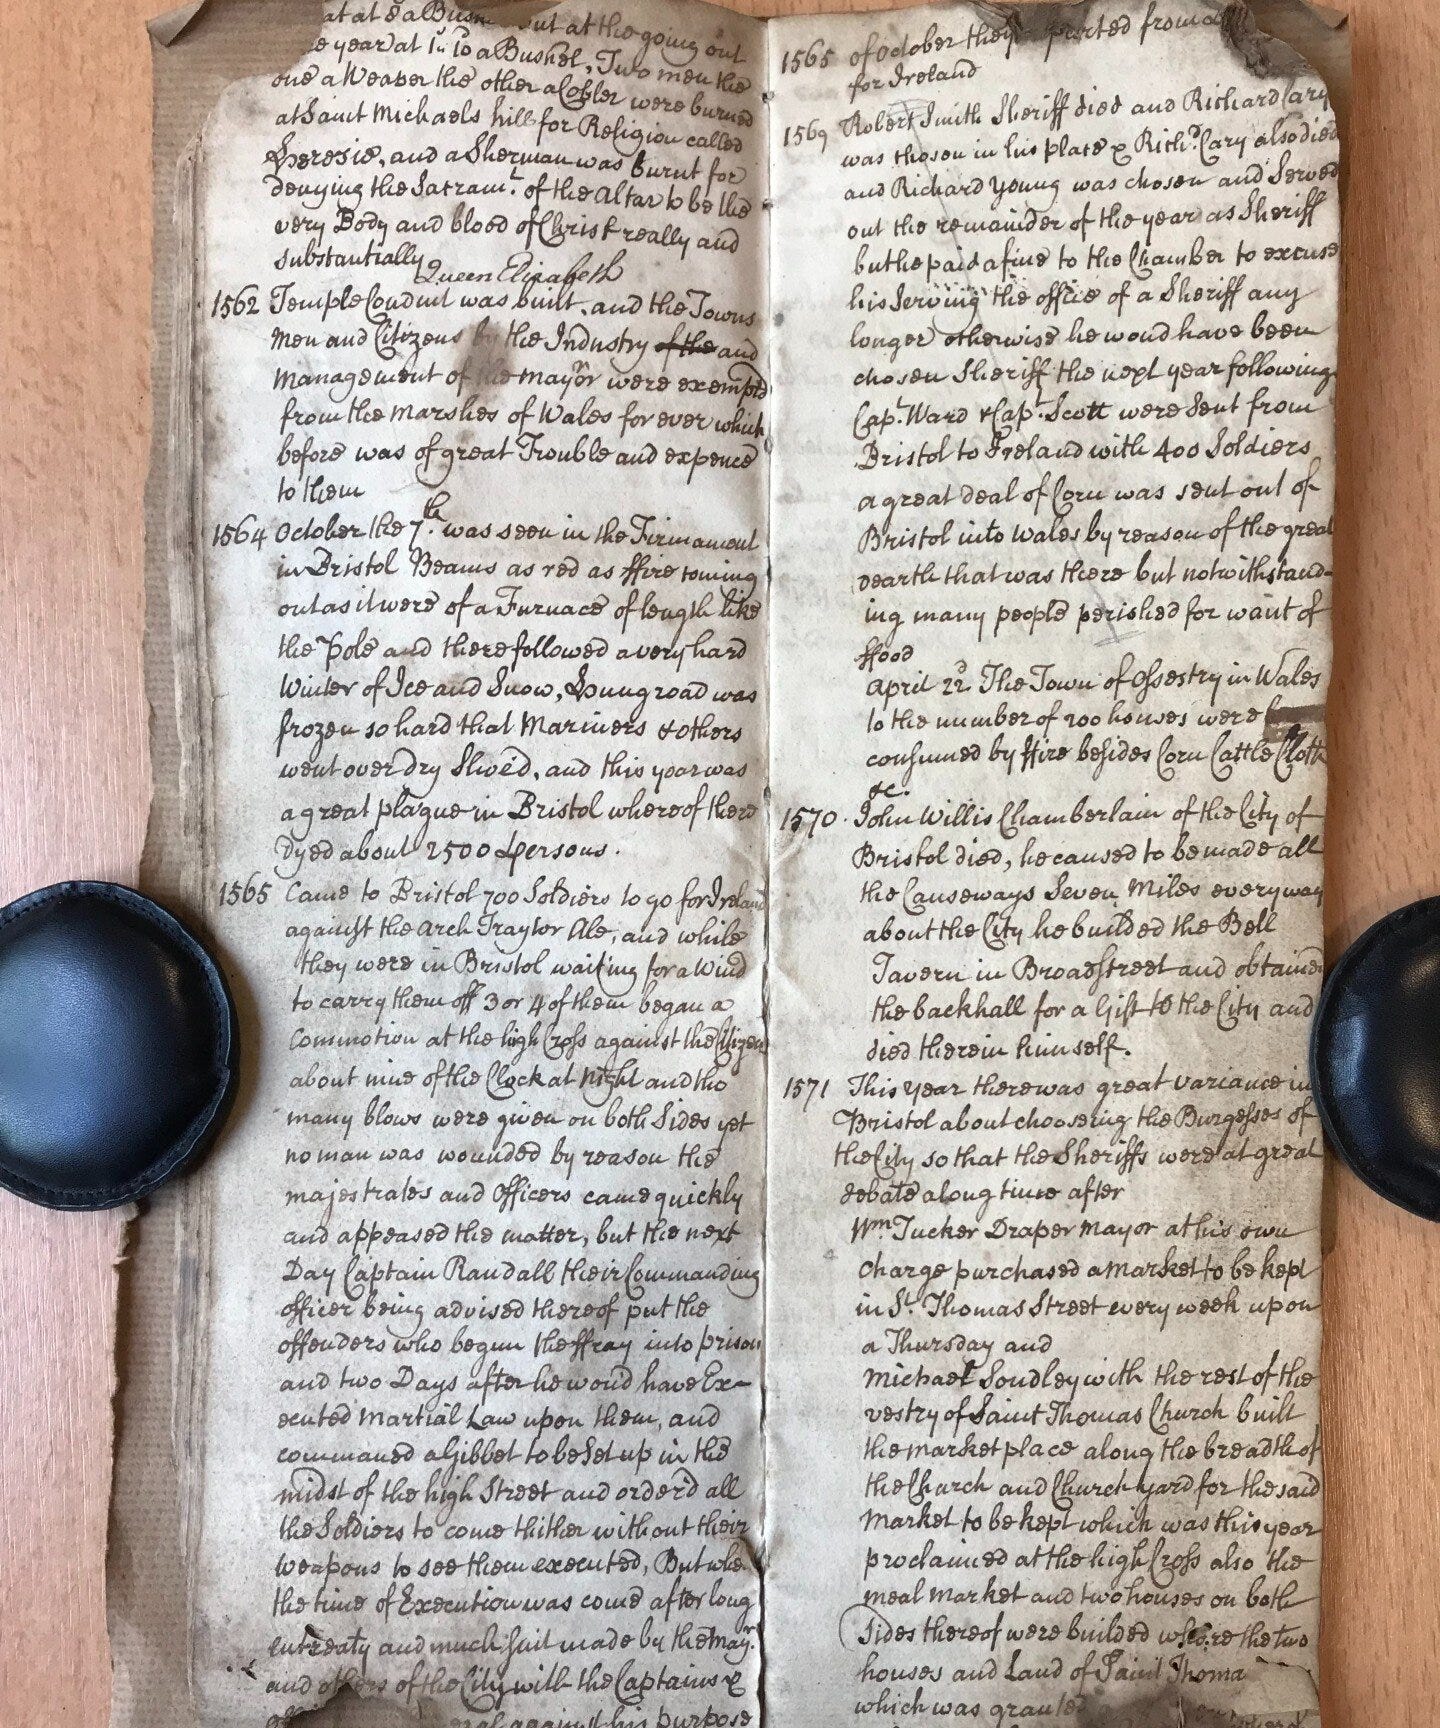 at at 8 a Bus but at the going out
year at 1s. 10 a Bushel, Two men the
one a Weaver the other a Cobler were burned
at Saint Michaels hill for Religion called
Heresie, and a Sherman was burnt for
denying the Sacramt. of the Altar to be the
very Body and blood of Christ really and
substantially
Queen Elizabeth
1562 Temple Conduit was built, and the Towns
Men and Citizens by the Industry of the and
Management of the Mayor were exempted
from the Marshes of Wales for ever which
before was of great Trouble and expence
to them
1564 October the 7th. was seen in the Firmament
in Bristol Beams as red as ffire coming
out as it were of a Furnace of length like
the Pole and there followed a very hard
Winter of Ice and Snow, Hungroad was
frozen so hard that Mariners & others
went over dry Shoed, and this year was
a great plague in Bristol whereof there
Dyed about 2500 Persons.
1565 Came to Bristol 700 Soldiers to go for Ireland
against the Arch Traytor Ale, and while
they were in Bristol waiting for a Wind
to carry them off 3 or 4 of them began a
Commotion at the high Cross against the Citizens
about nine of the Clock at Night and tho
many blows were given on both Sides yet
no man was wounded by reason the
majestrates and Officers came quickly
and appeased the matter, but the next
Day Captain Randall their Commanding
officer being advised thereof put the
offenders who begun the ffray into prison
and two Days after he would have Ex-
ecuted Martial Law upon them, and
commaned a Gibbet to be Set up in the
midst of the high Street and order'd all
the Soldiers to come thither without their
weapons to see them executed, But whe
the time of Execution was come after long
entreaty and much suit made by the Mayr.
and others of the City with the Captains &
against his purpose
1565 of October they parted from
for Ireland
1569 Robert Smith Sheriff died and Richard Cary
was chosen in his place & Richd. Cary also died
and Richard Young was chosen and Served
out the remainder of the year as Sheriff
but he paid a fine to the Chamber to excuse
his Serving the office of a Sheriff any
longer otherwise he woud have been
chosen Sheriff the next year following
Capt. Ward & Capt. Scott were Sent from
Bristol to Ireland with 400 Soldiers
a great deal of Corn was sent out of
Bristol into Wales by reason of the great
dearth that was there but notwithstand-
ing many people perished for want of
ffood
April 22d The Town of Ossestry in Wales
to the number of 200 houses were
consumed by ffire besides Corn Cattle Cloth
&c.
1570 John Willis Chamberlain of the City of
Bristol died, he caused to be made all
the Causeways Seven Miles every way
about the City he builded the Bell
Tavern in Broadstreet and obtained
the backhall for a Gift to the City and
died therein himself.
1571 This Year there was great variance in
Bristol about choosering the Burgesses of
the City so that the Sheriffs were at great
debate a long time after
Wm. Tucker Draper Mayor at his own
Charge purchased a market to be kept
in St. Thomas Street every week upon
a Thursday and
Michael Soudley with the rest of the
vestry of Saint Thomas Church built
the market place along the breadth of
the Church and Church yard for the said
Market to be kept which was this year
proclaimed at the high Cross also the
meal market and two houses on both
Sides thereof were builded where the two
houses and Land of Saint Thoma
which was granted